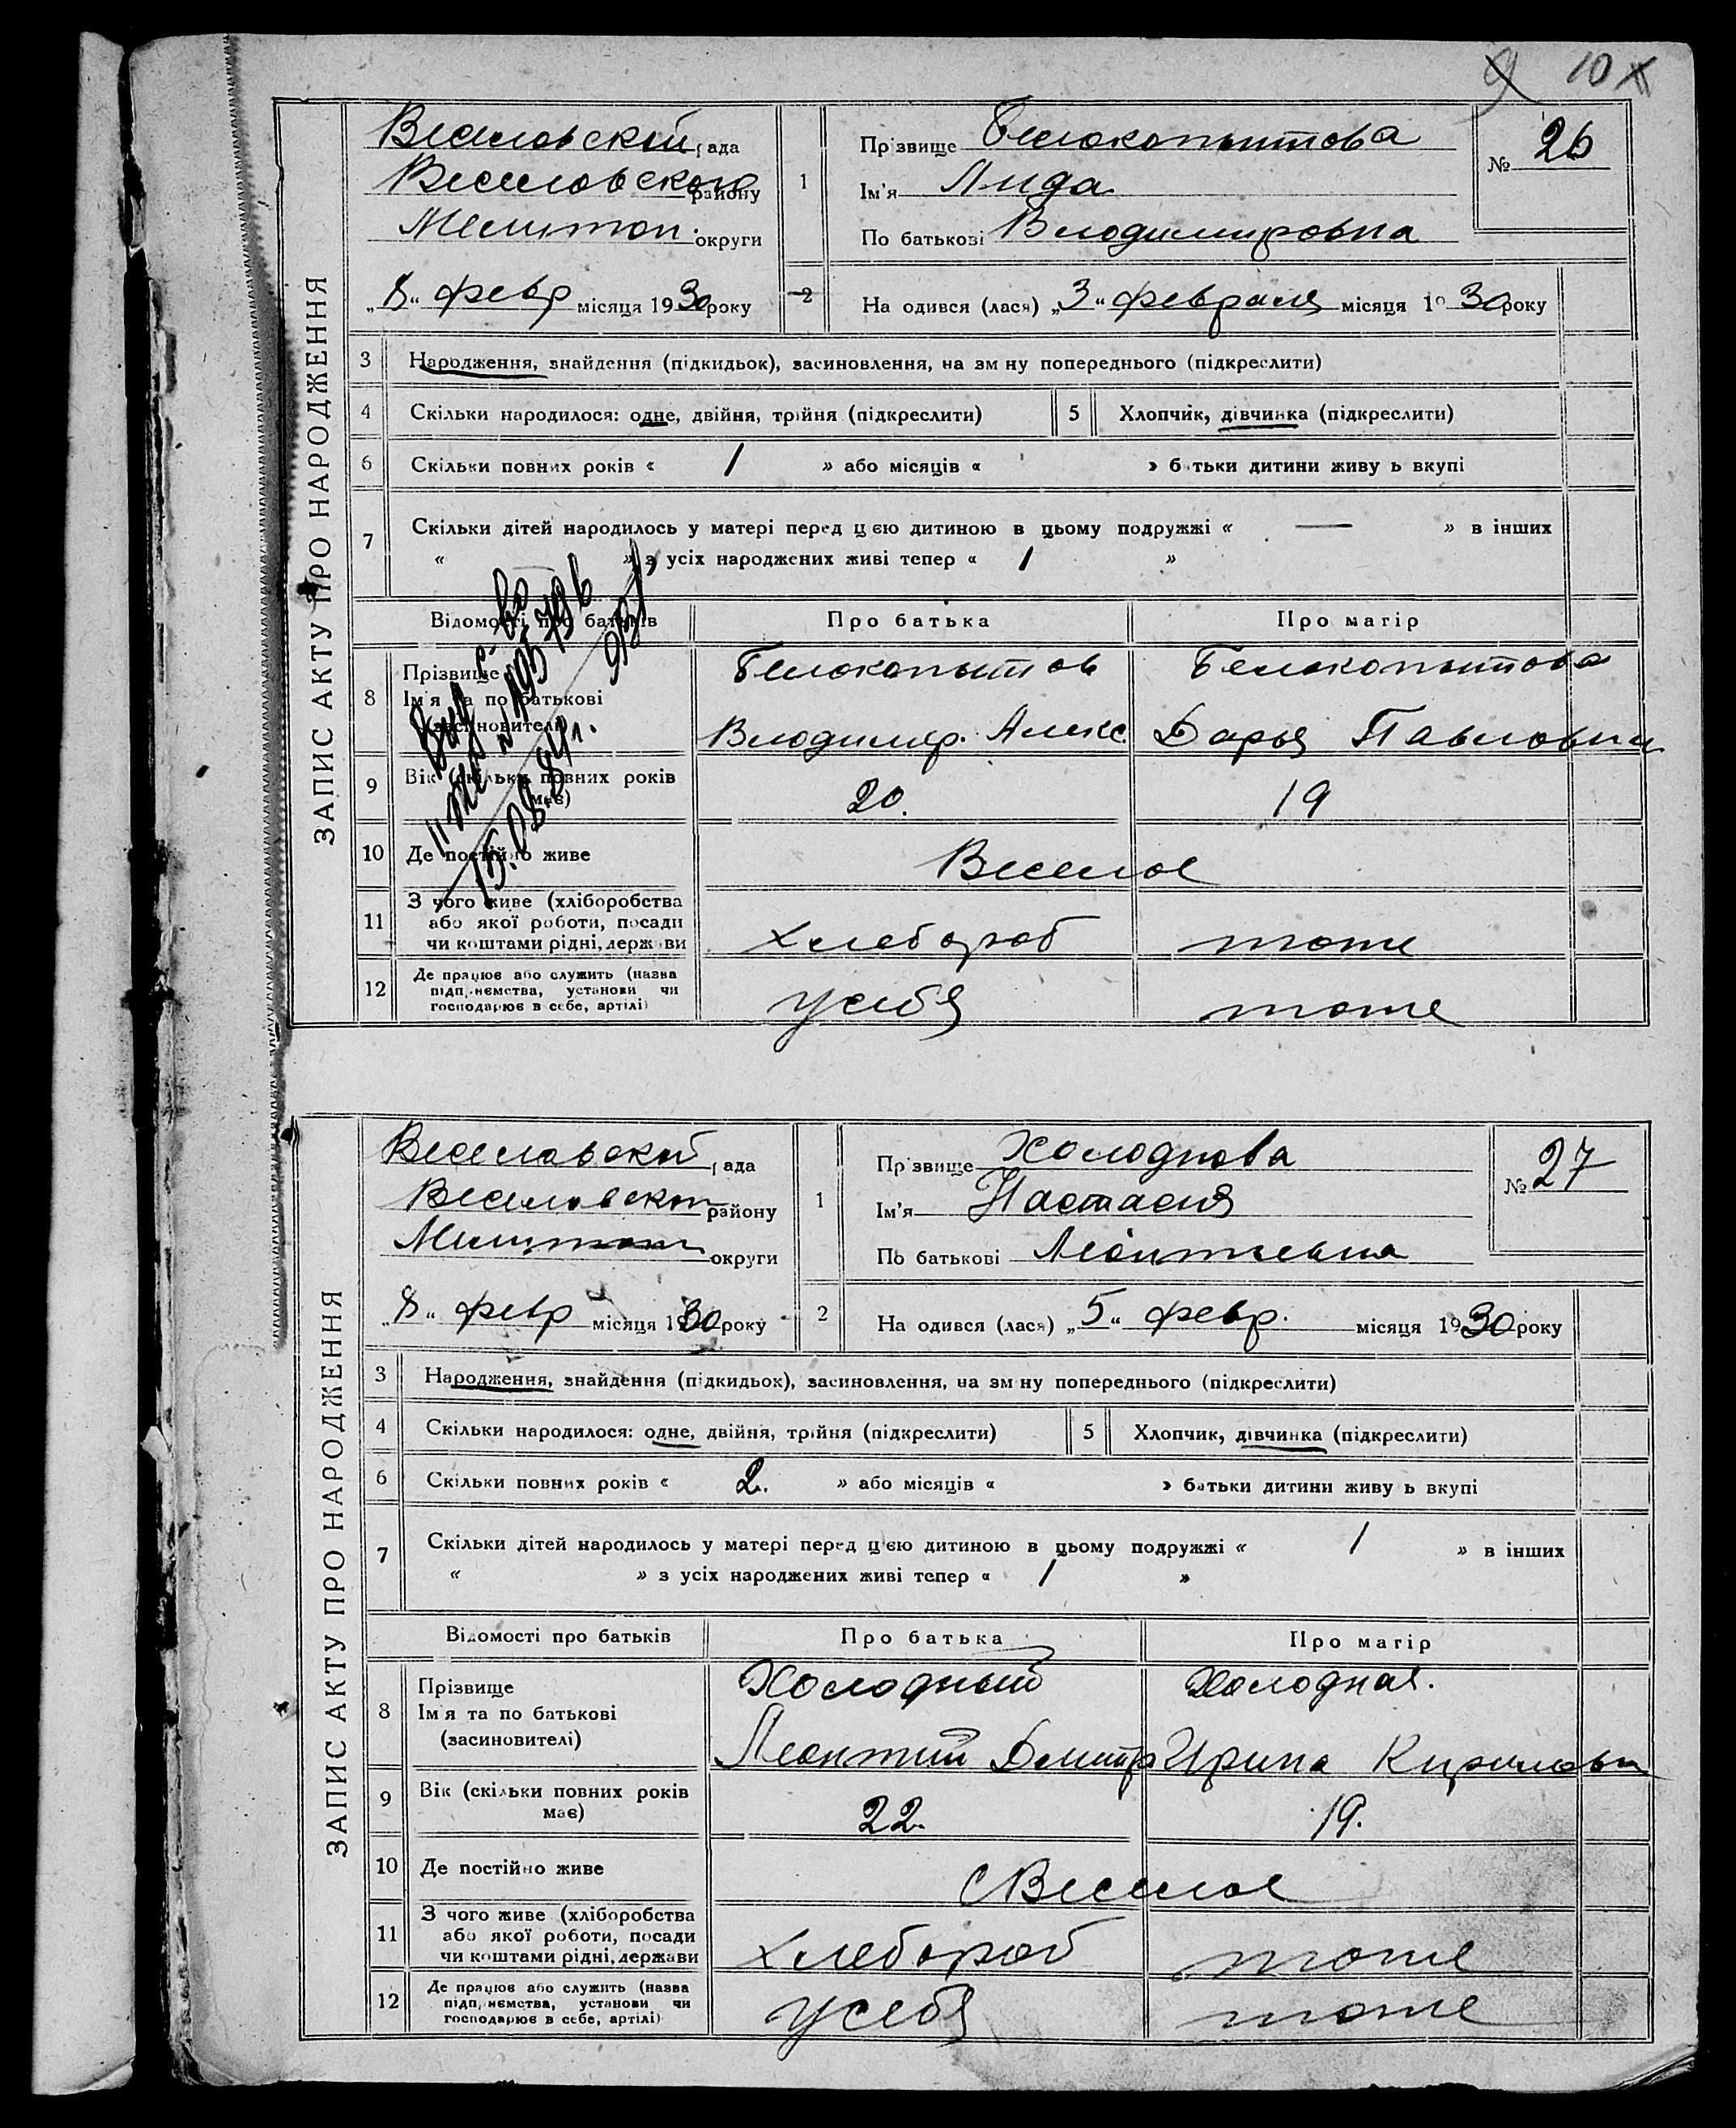 10
ЗАПИС АКТУ ПРО НАРОДЖЕННЯ
Веселовской рада
Веселовского району
Мелитоп. округи
„8“ февр місяця 1930 року
1
Прізвище Белокопытова
Ім'я Лида
По батькові Владимировна
№ 26
2
На одився (лася) „3“ февраля місяця 1930 року
3 Народження, знайдення (підкидьок), засиновлення, на зм ну попереднього (підкреслити)
4 Скільки народилося: одне, двійня, трійня (підкреслити) 5 Хлопчик, дівчинка (підкреслити)
6 Скільки повних років « 1 » або місяців « » батьки дитини живу ь вкупі
7 Скільки дітей народилось у матері перед цією дитиною в цьому подружжі « — » в інших
« » з усіх народжених живі тепер « 1 »
Відомості про батьків Про батька Про матір
8 Прізвище Белокопытов Белокопытова
Ім'я та по батькові
(засиновителі) Владимир. Алекс. Дарья Павловна
9 Вік (скільки повних років має) 20. 19
10 Де постійно живе Веселое
11 З чого живе (хліборобства
або якої роботи, посади
чи коштами рідні, держави Хлебороб тоже
12 Де працює або служить (назва
підп, иємства, установи чи
господарює в себе, артілі) у себя тоже
15.08.84г.
ЗАПИС АКТУ ПРО НАРОДЖЕННЯ
Веселовской рада
Веселовского району
Мелитоп округи
„8“ февр місяця 1930 року
1
Прізвище Холоднова
Ім'я Настасия
По батькові Леонтьевна
№ 27
2
На одився (лася) „5“ февр. місяця 1930 року
3 Народження, знайдення (підкидьок), засиновлення, на зм ну попереднього (підкреслити)
4 Скільки народилося: одне, двійня, трійня (підкреслити) 5 Хлопчик, дівчинка (підкреслити)
6 Скільки повних років « 2. » або місяців « » батьки дитини живу ь вкупі
7 Скільки дітей народилось у матері перед цією дитиною в цьому подружжі « 1 » в інших
« » з усіх народжених живі тепер « 1 »
Відомості про батьків Про батька Про матір
8 Прізвище Холодный Холодная.
Ім'я та по батькові
(засиновителі) Леонтий Дмитр Ирина Кирилова
9 Вік (скільки повних років має) 22. 19.
10 Де постійно живе с Веселое
11 З чого живе (хліборобства
або якої роботи, посади
чи коштами рідні, держави Хлебороб тоже
12 Де працює або служить (назва
підп, иємства, установи чи
господарює в себе, артілі) у себя тоже